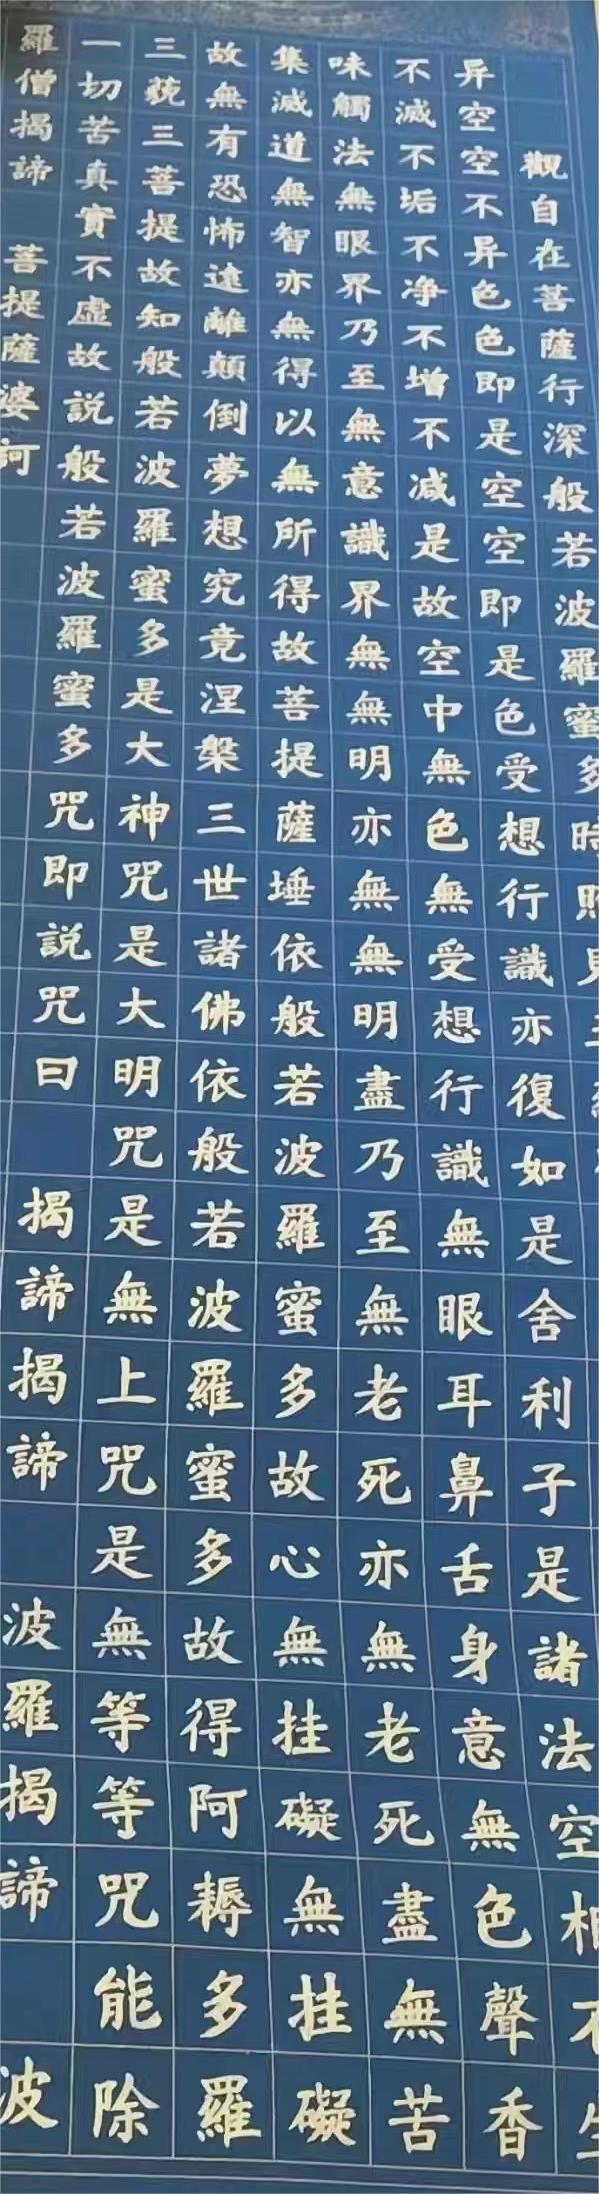 觀自在菩薩行深般若波羅蜜多時照見
异空空不异色色即是空空即是色受想行識亦復如是舍利子是諸法空相不生
不滅不垢不净不增不减是故空中無色無受想行識無眼耳鼻舌身意無色聲香
味觸法無眼界乃至無意識界無無明亦無無明盡乃至無老死亦無老死盡無苦
集滅道無智亦無得以無所得故菩提薩埵依般若波羅蜜多故心無挂礙無挂礙
故無有恐怖遠離顛倒夢想究竟涅槃三世諸佛依般若波羅蜜多故得阿耨多羅
三藐三菩提故知般若波羅蜜多是大神咒是大明咒是無上咒是無等等咒能除
一切苦真實不虛故説般若波羅蜜多咒即説咒曰 揭諦揭諦 波羅揭諦 波
羅僧揭諦 菩提薩婆訶